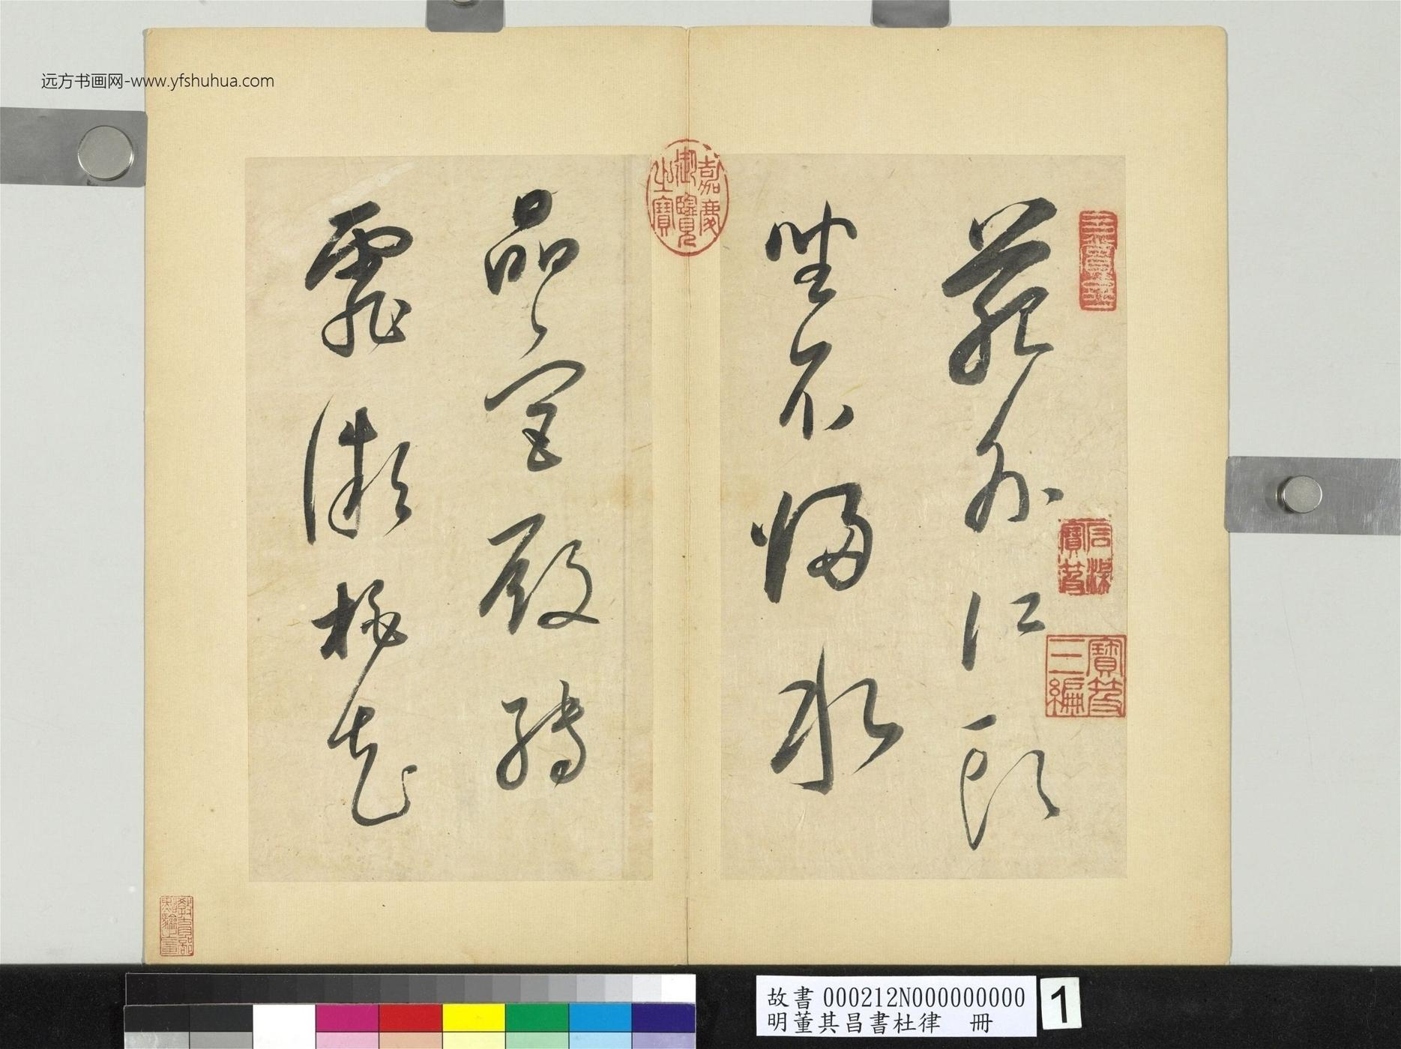 远方书画网-www.yfshuhua.com
苑外江頭
坐不歸水
晶宮殿轉
霏微桃花
嘉慶御覽之寶
寶笈三編
故書 000212N000000000
明董其昌書杜律 冊
1